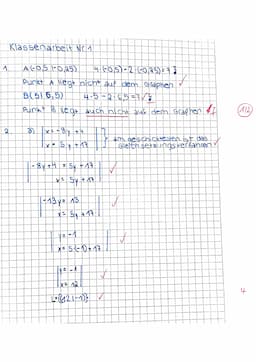 Klassenarbeit Nr.1
1. A(-0,5|-0,75) 4·(-0,5)-2·(-0,75)=7
Punkt A liegt nicht auf dem Graphen
B(5|6,5) 4·5-2·6,5=7
Punkt B liegt auch nicht auf dem Graphen
2. a) |x=-8y+4
|x=5y+17
am geschicktesten ist das
Gleichsetzungsverfahren
|-8y+4=5y+17
x=5y+17
|-13y=13
x=5y+17
|y=-1
x=5·(-1)+17
|y=-1
x=12
L={(12|-1)}
4